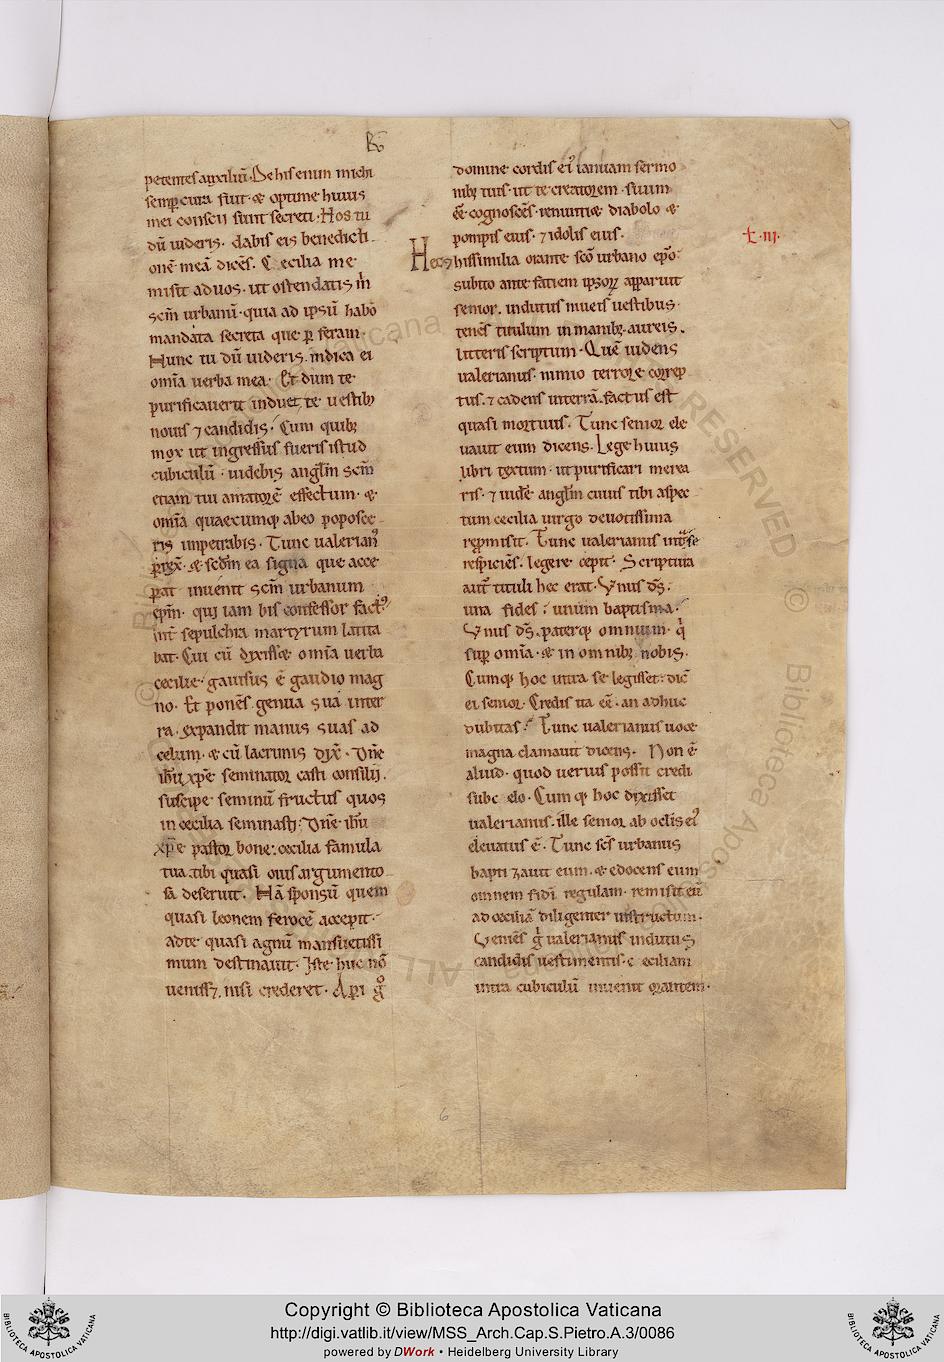 petentes auxiliū. De his enim michi
semp̱ cura fuit. & optime huius
mei conscii sunt secreti. Hos tu
dū uideris. dabis eis benedicti
onē meā dicēs. Cecilia me
misit ad uos. ut ostendatis m̊
sc̄m urbanū. quia ad ip̄sū habō
mandata secreta que p̱ feram.
Hunc tu dū uideris. indica ei
om̄ia uerba mea. Et dum te
purificauerit induet te uestibꝫ
nouis ⁊ candidis. Cum quibꝫ
mox ut ingressus fueris istud
cubiculū. uidebis angl̄m sc̄m
etiam tui amatorē effectum. &
om̄ia quaecumqꝫ ab eo poposce
ris impetrabis. Tunc ualerianꝰ
p̱rex̄. & sc̄dm ea signa que acce
perat inuenit sc̄m urbanum
ep̄m. qui iam bis confessor factꝰ
int̄ sepulchra martyrum latita
bat. Cui cū dixiss& om̄ia uerba
cecilie. gauisus ē gaudio mag
no. Et ponēs genua sua in ter
ra. expandit manus suas ad
celum. & cū lacrimis dix̄. Dn̄e
ih̄u xp̄e seminator casti consilij.
suscipe seminū fructus quos
in cecilia seminasti. Dn̄e ih̄u
xp̄e pastor bone. cecilia famula
tua tibi quasi ouis argumento
sa deseruit. Nā sponsū quem
quasi leonem ferocē accepit.
ad te quasi agnū mansuetissi
mum destinauit. Iste huc nō
uenissꝫ. nisi crederet. Aperi g̊
domine cordis eiꝰ ianuam sermo
nibꝫ tuis. ut te creatorem suum
ēē cognoscēs. renuntiet diabolo &
pompis eius. ⁊ idolis eius.
t. iij.
Hec ⁊ his similia orante sc̄o urbano ep̄o.
subito ante faciem ip̄soꝝ apparuit
senior. indutus niueis uestibus.
tenēs titulum in manibꝫ. aureis
litteris scriptum. Quē uidens
ualerianus. nimio terrore correp
tus. ⁊ cadens in terrā. factus est
quasi mortuus. Tunc senior ele
uauit eum dicens. Lege huius
libri textum. ut purificari merea
ris. ⁊ uidē angl̄m cuius tibi aspec
tum cecilia uirgo deuotissima
repromisit. Tunc ualerianus intra se
respiciēs. legere cepit. Scriptura
aut̄ tituli hec erat. Vnus ds̄.
una fides. unum baptisma.
Vnus ds̄. & pater omnium. qͥ
sup̱ om̄ia. & in omnibꝫ nobis.
Cumqꝫ hoc intra se legisset. dic̄
ei senior. Credis ita ēē. an adhuc
dubitas. Tunc ualerianus uoce
magna clamauit dicens. Non ē
aliud. quod uerius possit credi
sub celo. Cumqꝫ hoc dixisset
ualerianus. ille senior ab oclis eiꝰ
eleuatus ē. Tunc sc̄s urbanus
baptizauit eum. & edocens eum
omnem fidei regulam. remisit eū
ad ceciliā diligenter instructum.
Veniēs g̊ ualerianus indutus
candidis uestimentis. ceciliam
intra cubiculū inuenit orantem.
6
Copyright © Biblioteca Apostolica Vaticana
http://digi.vatlib.it/view/MSS_Arch.Cap.S.Pietro.A.3/0086
powered by DWork • Heidelberg University Library
BIBLIOTECA APOSTOLICA VATICANA
BIBLIOTECA APOSTOLICA VATICANA